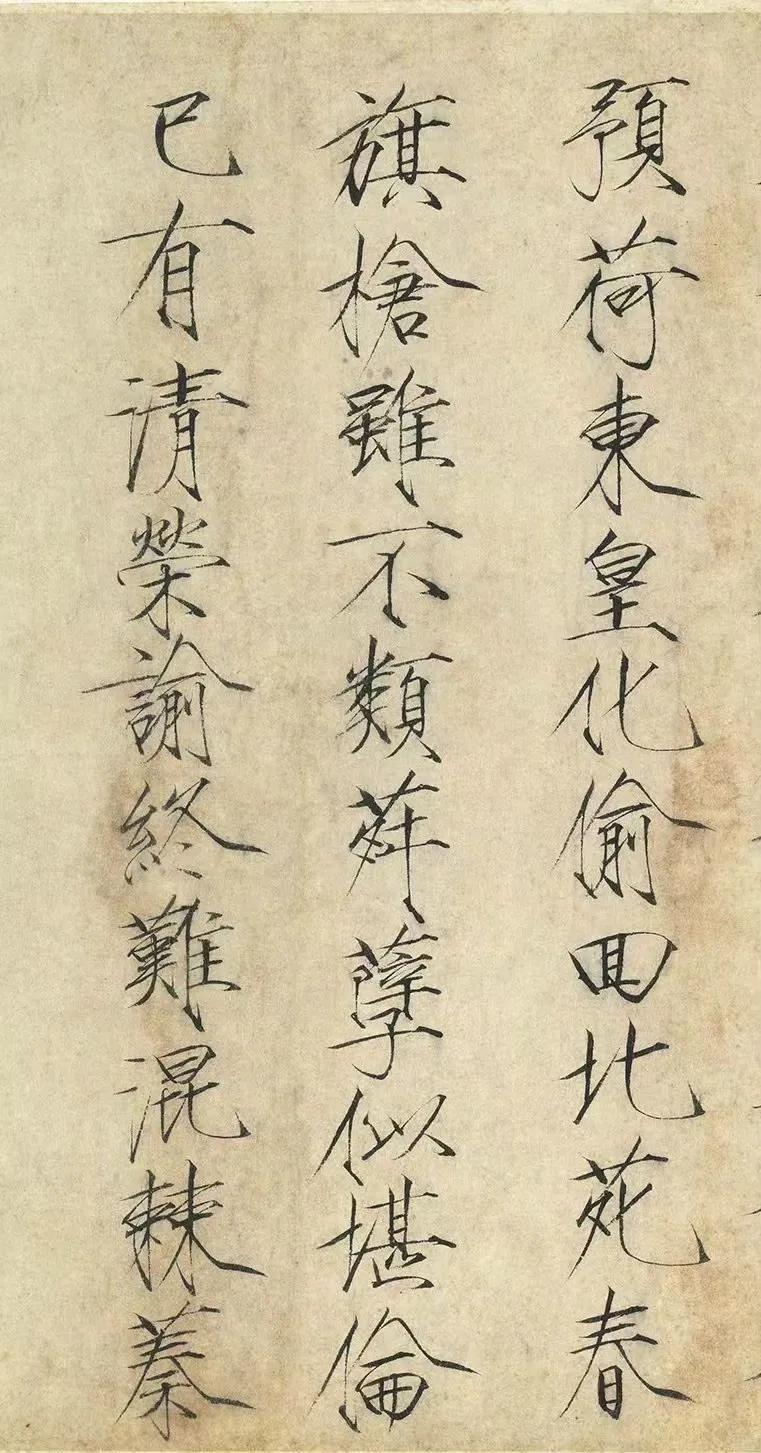 預荷東皇化偷囬北苑春
旗槍雖不類荈孽似堪倫
已有清榮諭終難混棘蓁